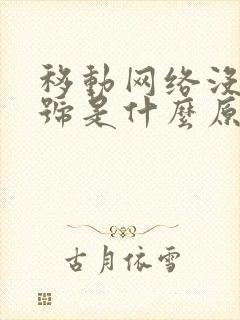 移動网络没
號是什麼原
古月依雪